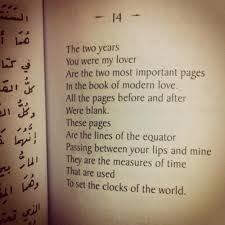 14
The two years
You were my lover
Are the two most important pages
In the book of modern love.
All the pages before and after
Were blank.
These pages
Are the lines of the equator
Passing between your lips and mine
They are the measures of time
That are used
To set the clocks of the world.